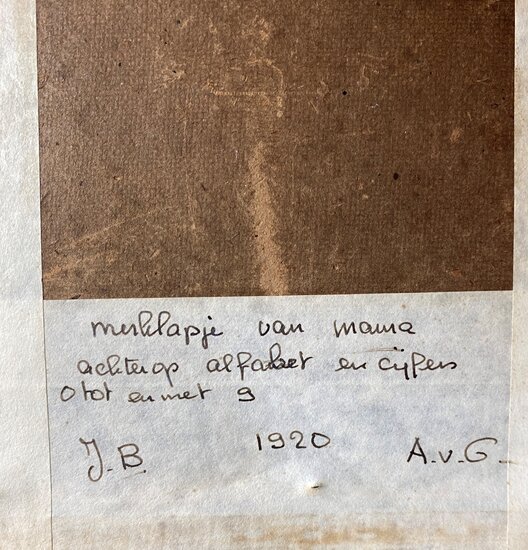 merklapje van mama
achterop alfabet en cijfers
0 tot en met 9
J.B. 1920 A.v.G.